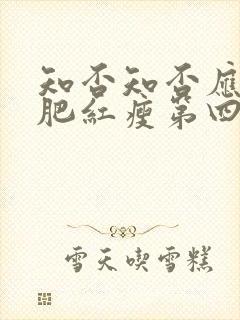 知否知否應
肥紅瘦第四
雪天喫雪糕